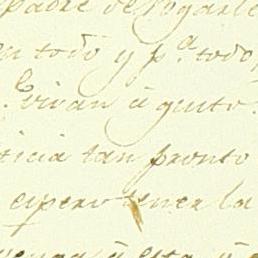 padre de rogarle
en todo y p.ª todo,
. Vivan á gusto.
ticia tan pronto
espero tener la
venga á esta, y á